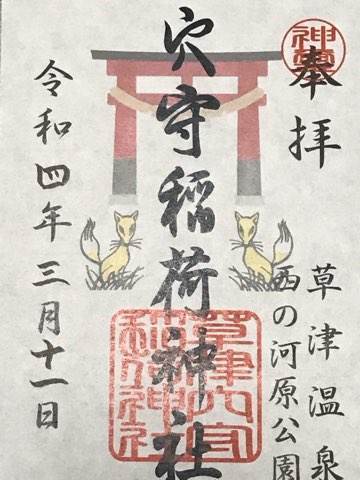 奉拝
草津温泉
西の河原公園
穴守稲荷神社
令和四年三月十一日
草津穴守稲荷神社